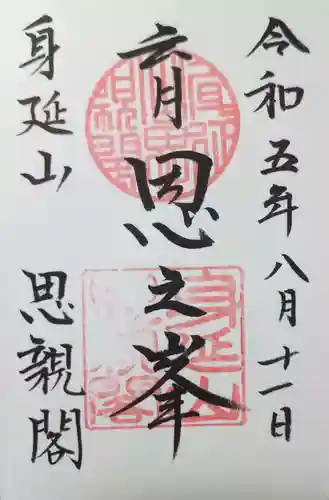 令和五年八月十一日
六月恩之峯
身延山 思親閣